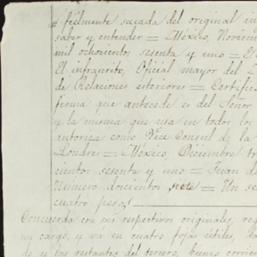 fielmente sacada del original en
saber y entender = México, Noviem
mil ochocientos sesenta y uno = El
El infrascrito, Oficial mayor del
de Relaciones exteriores = Certifica
firma que antecede es del Señor
y la misma que usa en todos los
autoriza como Vice Consul de la
Londres = México Diciembre tr
cientos sesenta y uno = Juan de
Numero doscientos siete = Un se
cuatro pesos
Concuerda con sus respectivos originales, que
su cargo, y vá en cuatro fojas útiles, la
de y las restantes del tercero, bienes corrien